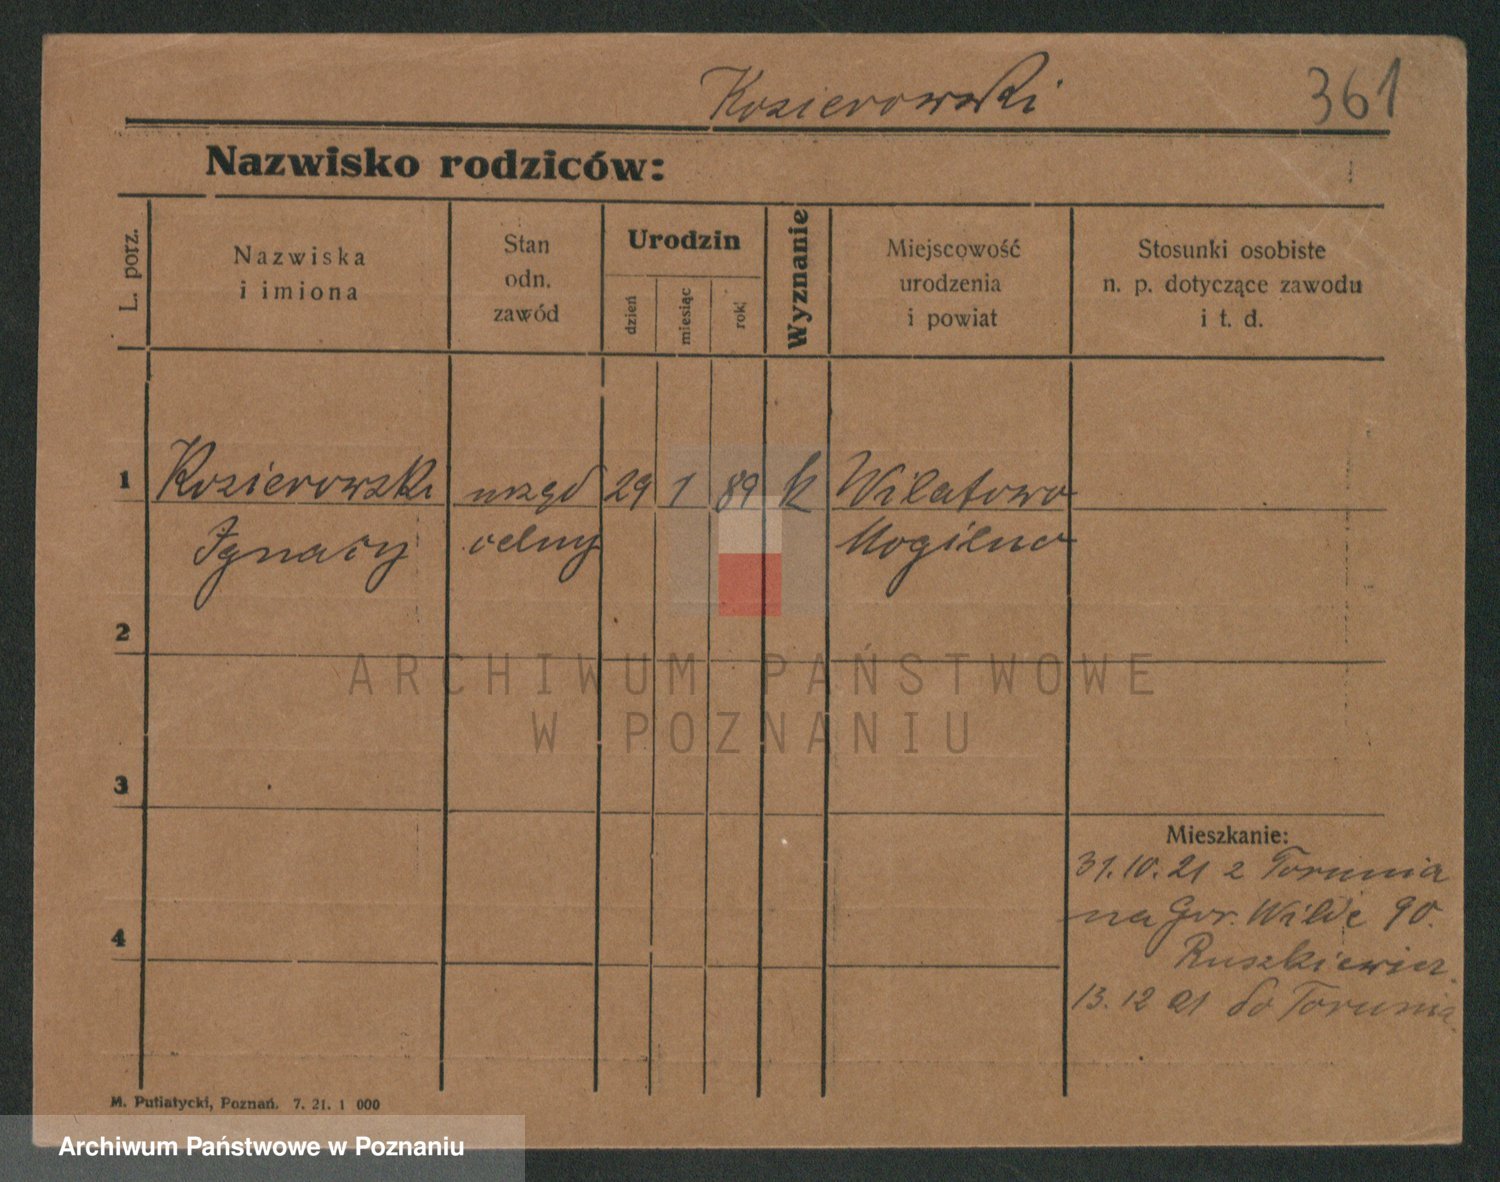 Kozierowski 361
Nazwisko rodziców:
L. porz.
Nazwiska
i imiona
Stan
odn.
zawód
Urodzin
dzień
miesiąc
rok
Wyznanie
Miejscowość
urodzenia
i powiat
Stosunki osobiste
n. p. dotyczące zawodu
i t. d.
1 Kozierowski urzęd 29 1 89 k Wilatowo
Ignacy celny Mogilno
2
3
4
Mieszkanie:
31.10.21 z Torunia
na Gór. Wildę 90.
Ruszkiewicz
13.12 21 do Torunia.
M. Putiatycki, Poznań. 7. 21. 1 000
ARCHIWUM PAŃSTWOWE
W POZNANIU
Archiwum Państwowe w Poznaniu